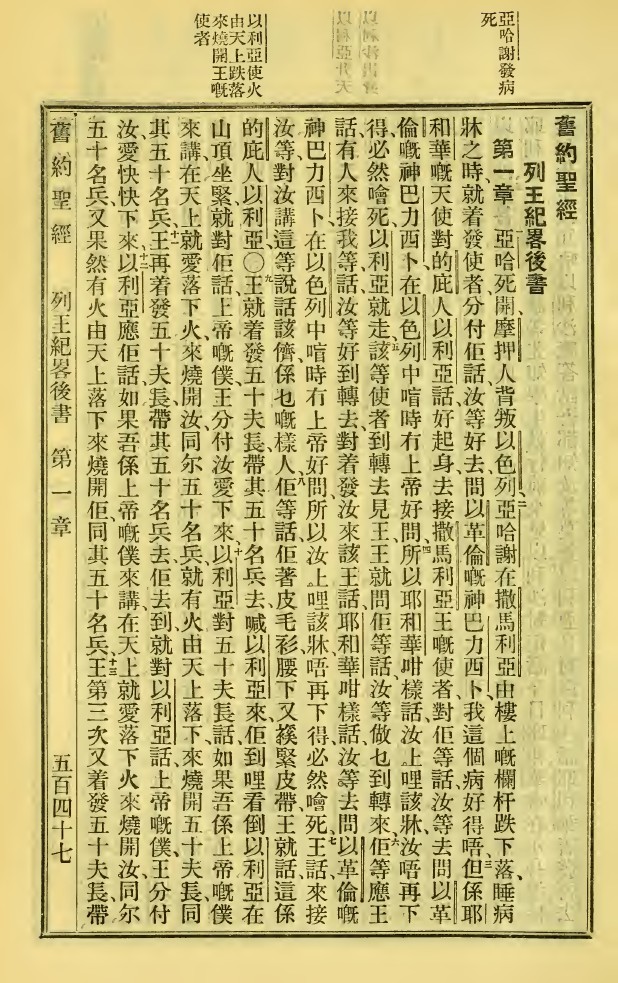 亞哈謝發病
死
以利亞使火
由天上跌落
來燒開王嘅
使者
舊約聖經
列王紀畧後書
第一章 一亞哈死開、摩押人背叛以色列、二亞哈謝在撒馬利亞由樓上嘅欄杆跌下落、睡病
牀之時、就着發使者分付佢話、汝等好去問以革倫嘅神巴力西卜、我這個病好得唔、三但係耶
和華嘅天使對的庇人以利亞話、好起身去接撒馬利亞王嘅使者、對佢等話、汝等去問以革
倫嘅神巴力西卜、在以色列中喑時冇上帝好問、四所以耶和華咁樣話、汝上哩該牀、汝唔再下
得、必然噲死、以利亞就走、五該等使者到轉去見王、王就問佢等話、汝等做乜到轉來、六佢等應王
話、有人來接我等話、汝等好到轉去、對着發汝來該王話、耶和華咁樣話、汝等去問以革倫嘅
神巴力西卜、在以色列中喑時冇上帝好問、所以汝上哩該牀、唔再下得、必然噲死、七王話、來接
汝等、對汝講這等說話該儕、係乜嘅樣人、八佢等話、佢著皮毛衫、腰下又㩢緊皮帶、王就話、這係
的庇人以利亞〇九王就着發五十夫長、帶其五十名兵去喊以利亞來、佢到哩、看倒以利亞在
山頂坐緊、就對佢話、上帝嘅僕、王分付汝愛下來、十以利亞對五十夫長話、如果吾係上帝嘅僕
來講、在天上就愛落下火來、燒開汝同尔五十名兵、就有火由天上落下來、燒開五十夫長、同
其五十名兵、十一王再着發五十夫長、帶其五十名兵去、佢去到就對以利亞話、上帝嘅僕、王分付
汝愛快快下來、十二以利亞應佢話、如果吾係上帝嘅僕來講、在天上就愛落下火來、燒開汝、同尔
五十名兵、又果然有火由天上落下來、燒開佢、同其五十名兵、十三王第三次又着發五十夫長、帶
舊約聖經 列王紀畧後書 第一章 五百四十七